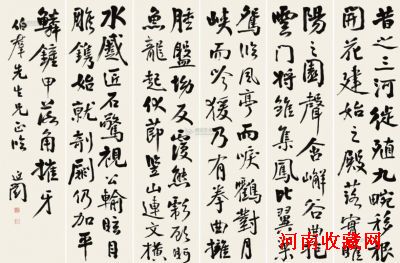 昔之三河徙殖九畹移根
開花建始之殿落實睢
陽之園聲含嶰谷曲抱
雲門將雛集鳳比翼巢
鴛臨風亭而唳鶴對月
峽而吟猨乃有拳曲擁
腫盤坳反覆熊彪顧盼
魚龍起伏節豎山連文橫
水蹙匠石驚視公輸眩目
雕鐫始就剞劂仍加平
鱗鏟甲落角摧牙
伯羣先生兄正 延闓
河南收藏网